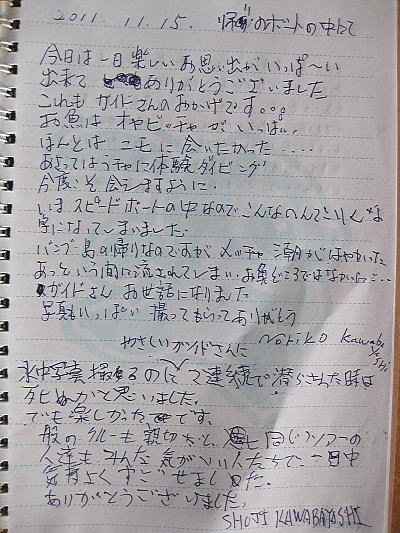 2011. 11. 15. 帰りのボートの中にて
今日は一日楽しいお思い出がいっぱ〜い
出来て ありがとうございました
これも ガイドさんのおかげです。。。
お魚は オヤビッチャ が いっぱい
ほんとは ニモ に 会いたかった ‥‥
あよってはうチャに体験ダイビング
今度こそ会えますように.
いま スピードボートの中なのでこんなのんてこりんな
字になってしまいました.
バンブー島の帰りなのですが メッチャ 潮がはやかった
あっという間に流されてしまい お魚どころではなかった‥‥
ガイドさん お世話になりました
写真いっぱい 撮ってもらってありがとう
やさしいガイドさんに Noriko Kawaba
水中写真撮るのに 2連続で潜らされた時は
死ぬかと思いました。
でも楽しかったです。
船のクルーも親切だし 同じツアーの
人達もみんな気がいい人たちで、一日中
気持よくすごせました。
ありがとうございました。
SHOJI KAWABAYASHI